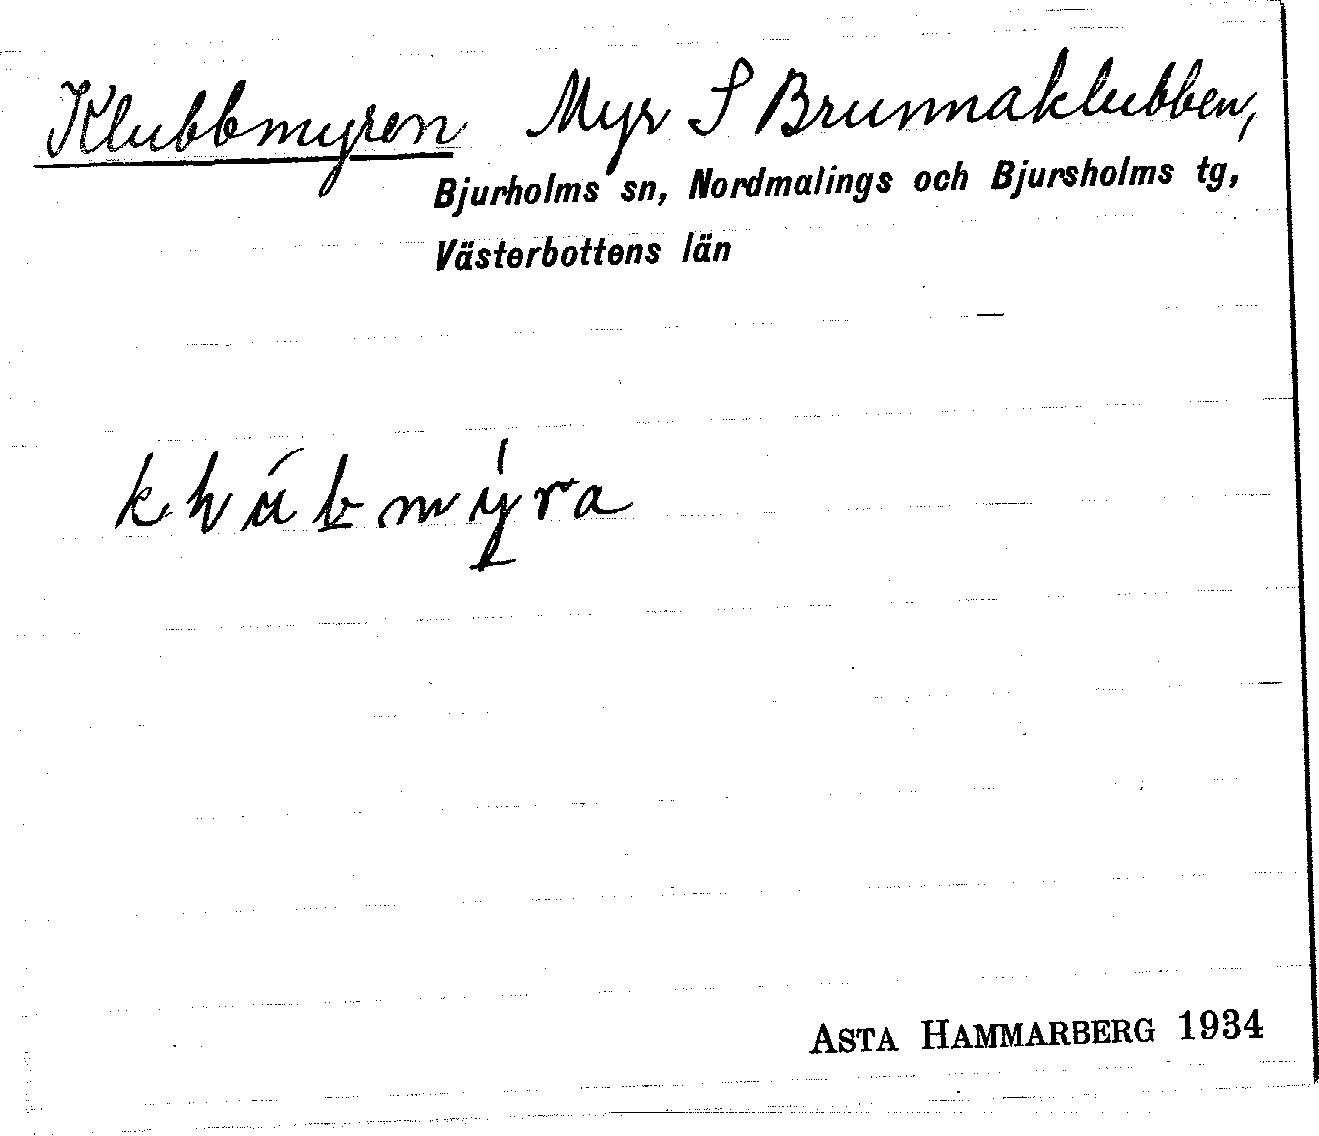 Klubbmyren Myr S Brunnaklubben,
Bjurholms sn, Nordmalings och Bjursholms tg,
Västerbottens län
ASTA HAMMARBERG 1934